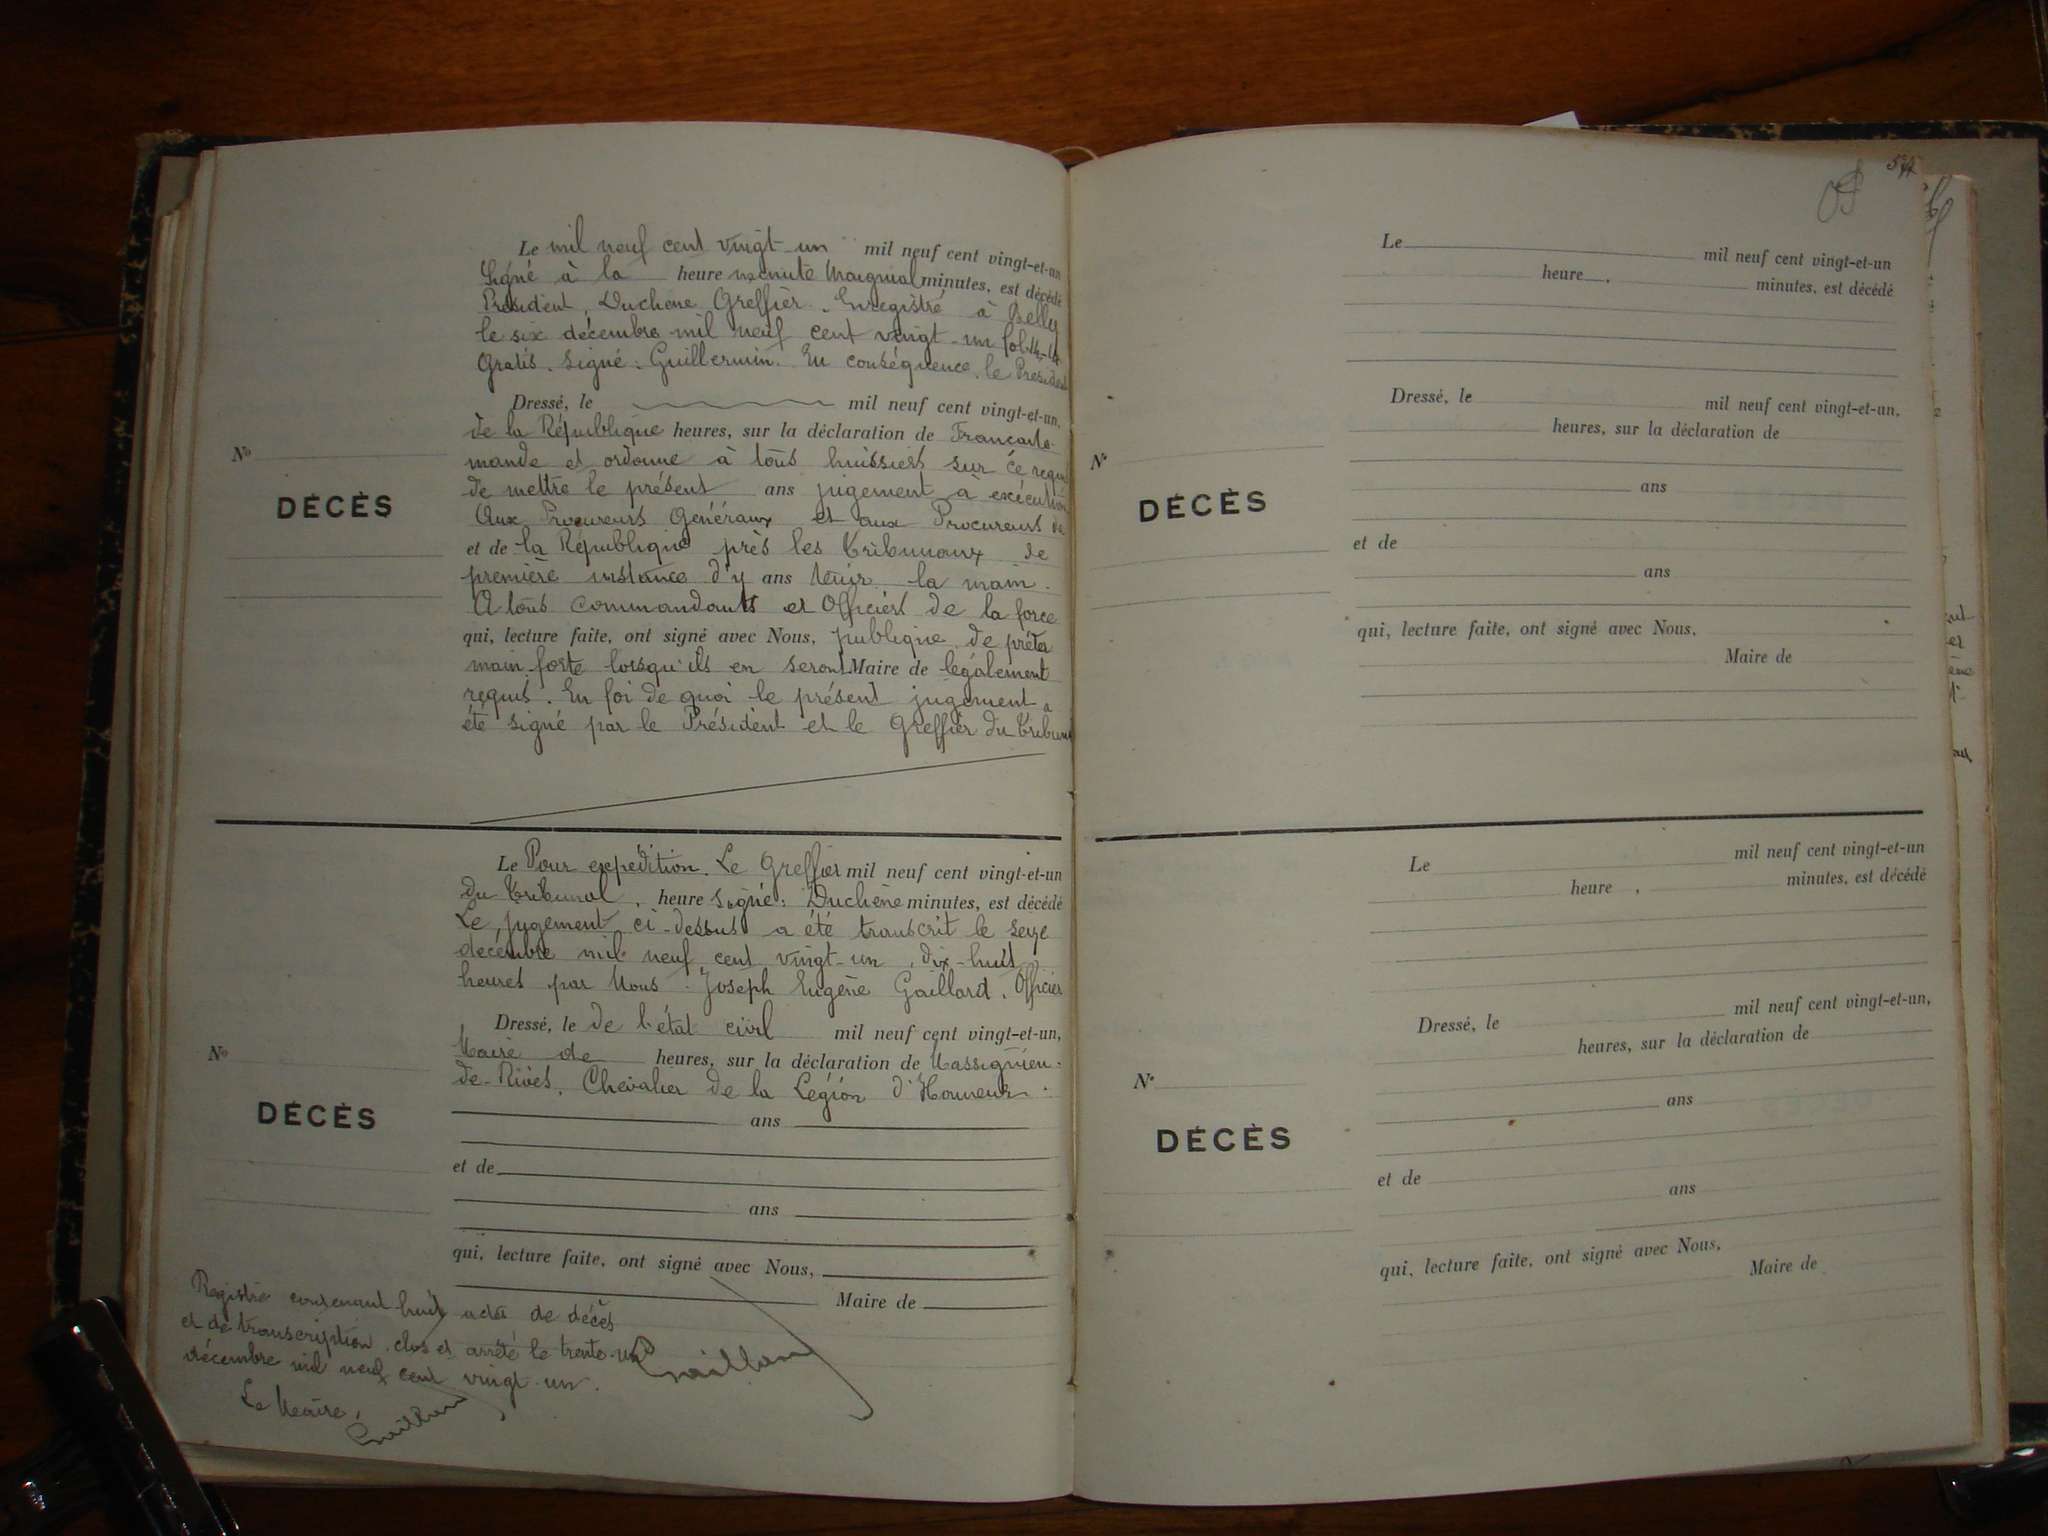 Le mil neuf cent vingt-un mil neuf cent vingt-et-un
Signé à la heure minute Maignial minutes, est décédé
Président, Duchêne Greffier. Enregistré à Belley
le six décembre mil neuf cent vingt-un
Gratis. Signé: Guillermin. En conséquence, le Président
Dressé, le mil neuf cent vingt-et-un,
de la République heures, sur la déclaration de Française
mande et ordonne à tous huissiers sur ce requis
de mettre le présent ans jugement à exécution
Aux Procureurs Généraux et aux Procureurs de
et de la République près les Tribunaux de
première instance d'y ans tenir la main.
A tous commandants et Officiers de la force
qui, lecture faite, ont signé avec Nous, publique de prêter
main-forte lorsqu'ils en seront Maire de légalement
requis. En foi de quoi le présent jugement a
été signé par le Président et le Greffier du Tribunal
No
DÉCÈS
Le Pour expédition. Le Greffier mil neuf cent vingt-et-un
du Tribunal, heure signé: Duchêne minutes, est décédé
Le jugement ci-dessus a été transcrit le seize
décembre mil neuf cent vingt-un, dix-huit
heures par Nous Joseph Eugène Gaillard, Officier
Dressé, le de l'état civil mil neuf cent vingt-et-un,
Maire de heures, sur la déclaration de Massignieu-
de-Rives, Chevalier de la Légion d'Honneur.
ans
et de
ans
qui, lecture faite, ont signé avec Nous,
Maire de
No
DÉCÈS
Registre contenant huit actes de décès
et de transcription clos et arrêté le trente-un
décembre mil neuf cent vingt-un.
Le Maire,
Gaillard
Gaillard
Le mil neuf cent vingt-et-un
heure minutes, est décédé
Dressé, le mil neuf cent vingt-et-un,
heures, sur la déclaration de
No
ans
DÉCÈS
et de
ans
qui, lecture faite, ont signé avec Nous,
Maire de
Le mil neuf cent vingt-et-un
heure , minutes, est décédé
Dressé, le mil neuf cent vingt-et-un,
heures, sur la déclaration de
No
ans
DÉCÈS
et de
ans
qui, lecture faite, ont signé avec Nous,
Maire de